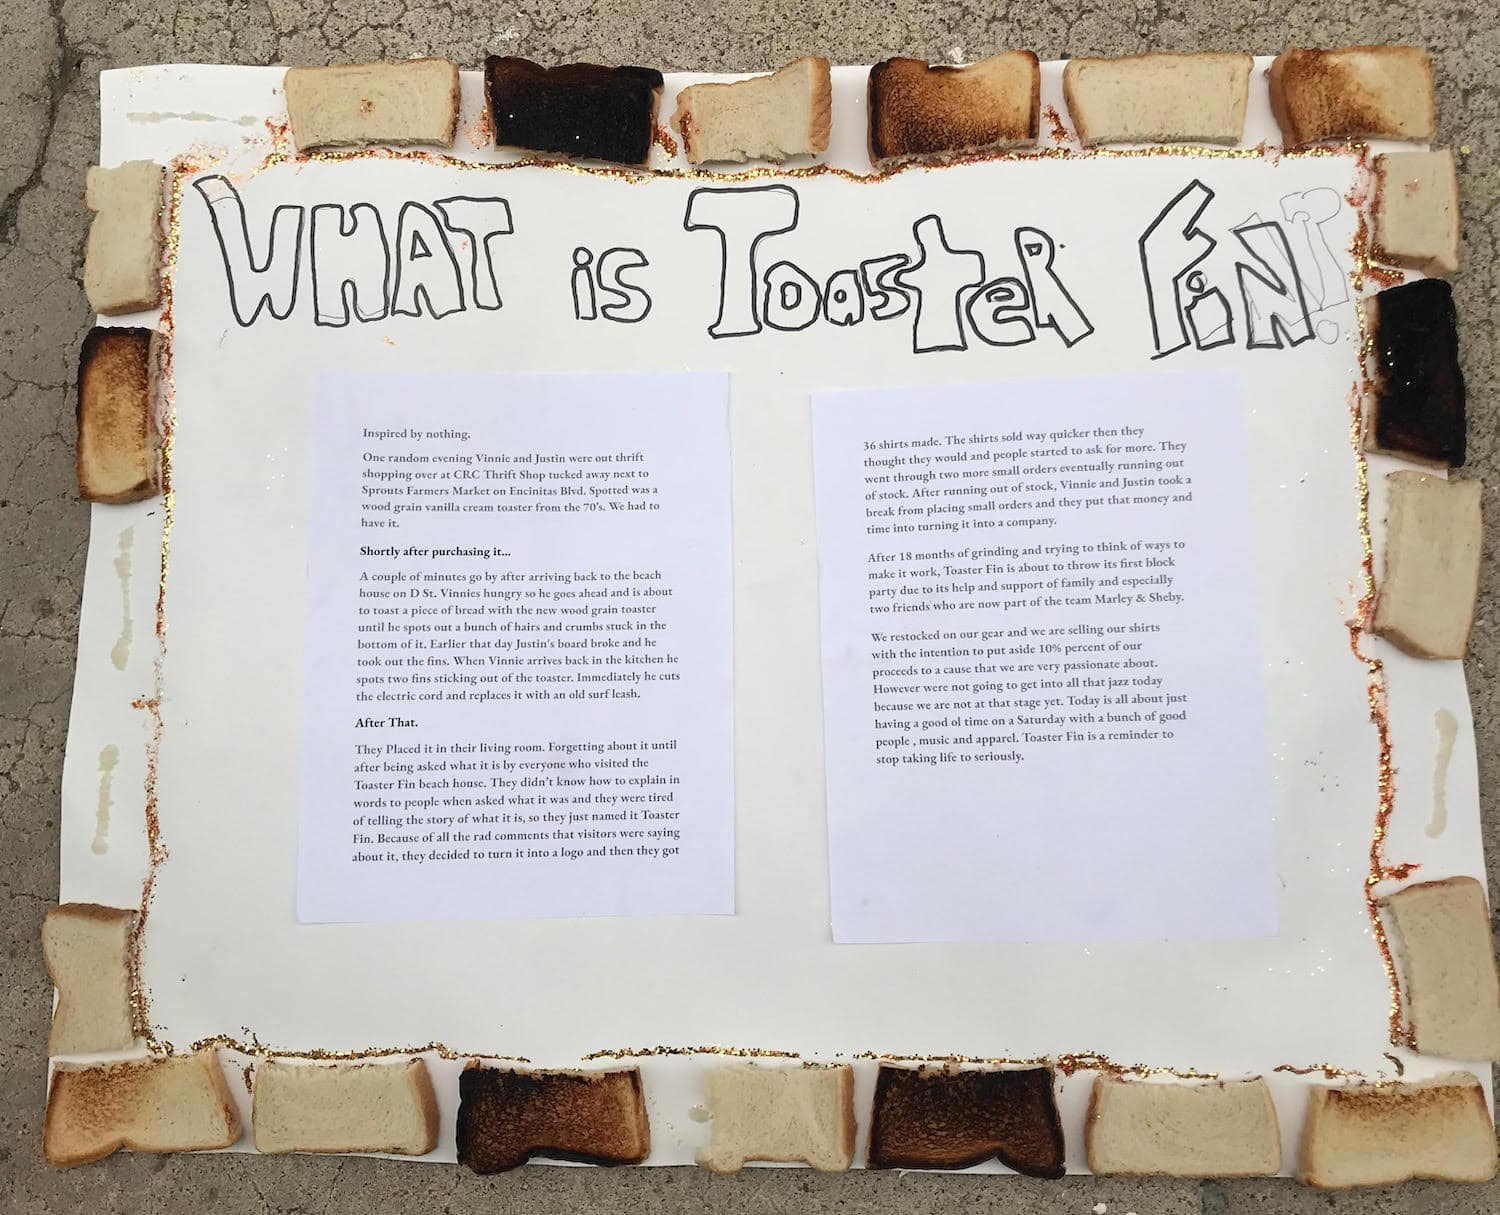 WHAT is Toaster Fin?
Inspired by nothing.
One random evening Vinnie and Justin were out thrift
shopping over at CRC Thrift Shop tucked away next to
Sprouts Farmers Market on Encinitas Blvd. Spotted was a
wood grain vanilla cream toaster from the 70's. We had to
have it.
Shortly after purchasing it...
A couple of minutes go by after arriving back to the beach
house on D St. Vinnies hungry so he goes ahead and is about
to toast a piece of bread with the new wood grain toaster
until he spots out a bunch of hairs and crumbs stuck in the
bottom of it. Earlier that day Justin's board broke and he
took out the fins. When Vinnie arrives back in the kitchen he
spots two fins sticking out of the toaster. Immediately he cuts
the electric cord and replaces it with an old surf leash.
After That.
They Placed it in their living room. Forgetting about it until
after being asked what it is by everyone who visited the
Toaster Fin beach house. They didn't know how to explain in
words to people when asked what it was and they were tired
of telling the story of what it is, so they just named it Toaster
Fin. Because of all the rad comments that visitors were saying
about it, they decided to turn it into a logo and then they got
36 shirts made. The shirts sold way quicker then they
thought they would and people started to ask for more. They
went through two more small orders eventually running out
of stock. After running out of stock, Vinnie and Justin took a
break from placing small orders and they put that money and
time into turning it into a company.
After 18 months of grinding and trying to think of ways to
make it work, Toaster Fin is about to throw its first block
party due to its help and support of family and especially
two friends who are now part of the team Marley & Sheby.
We restocked on our gear and we are selling our shirts
with the intention to put aside 10% percent of our
proceeds to a cause that we are very passionate about.
However were not going to get into all that jazz today
because we are not at that stage yet. Today is all about just
having a good ol time on a Saturday with a bunch of good
people , music and apparel. Toaster Fin is a reminder to
stop taking life to seriously.